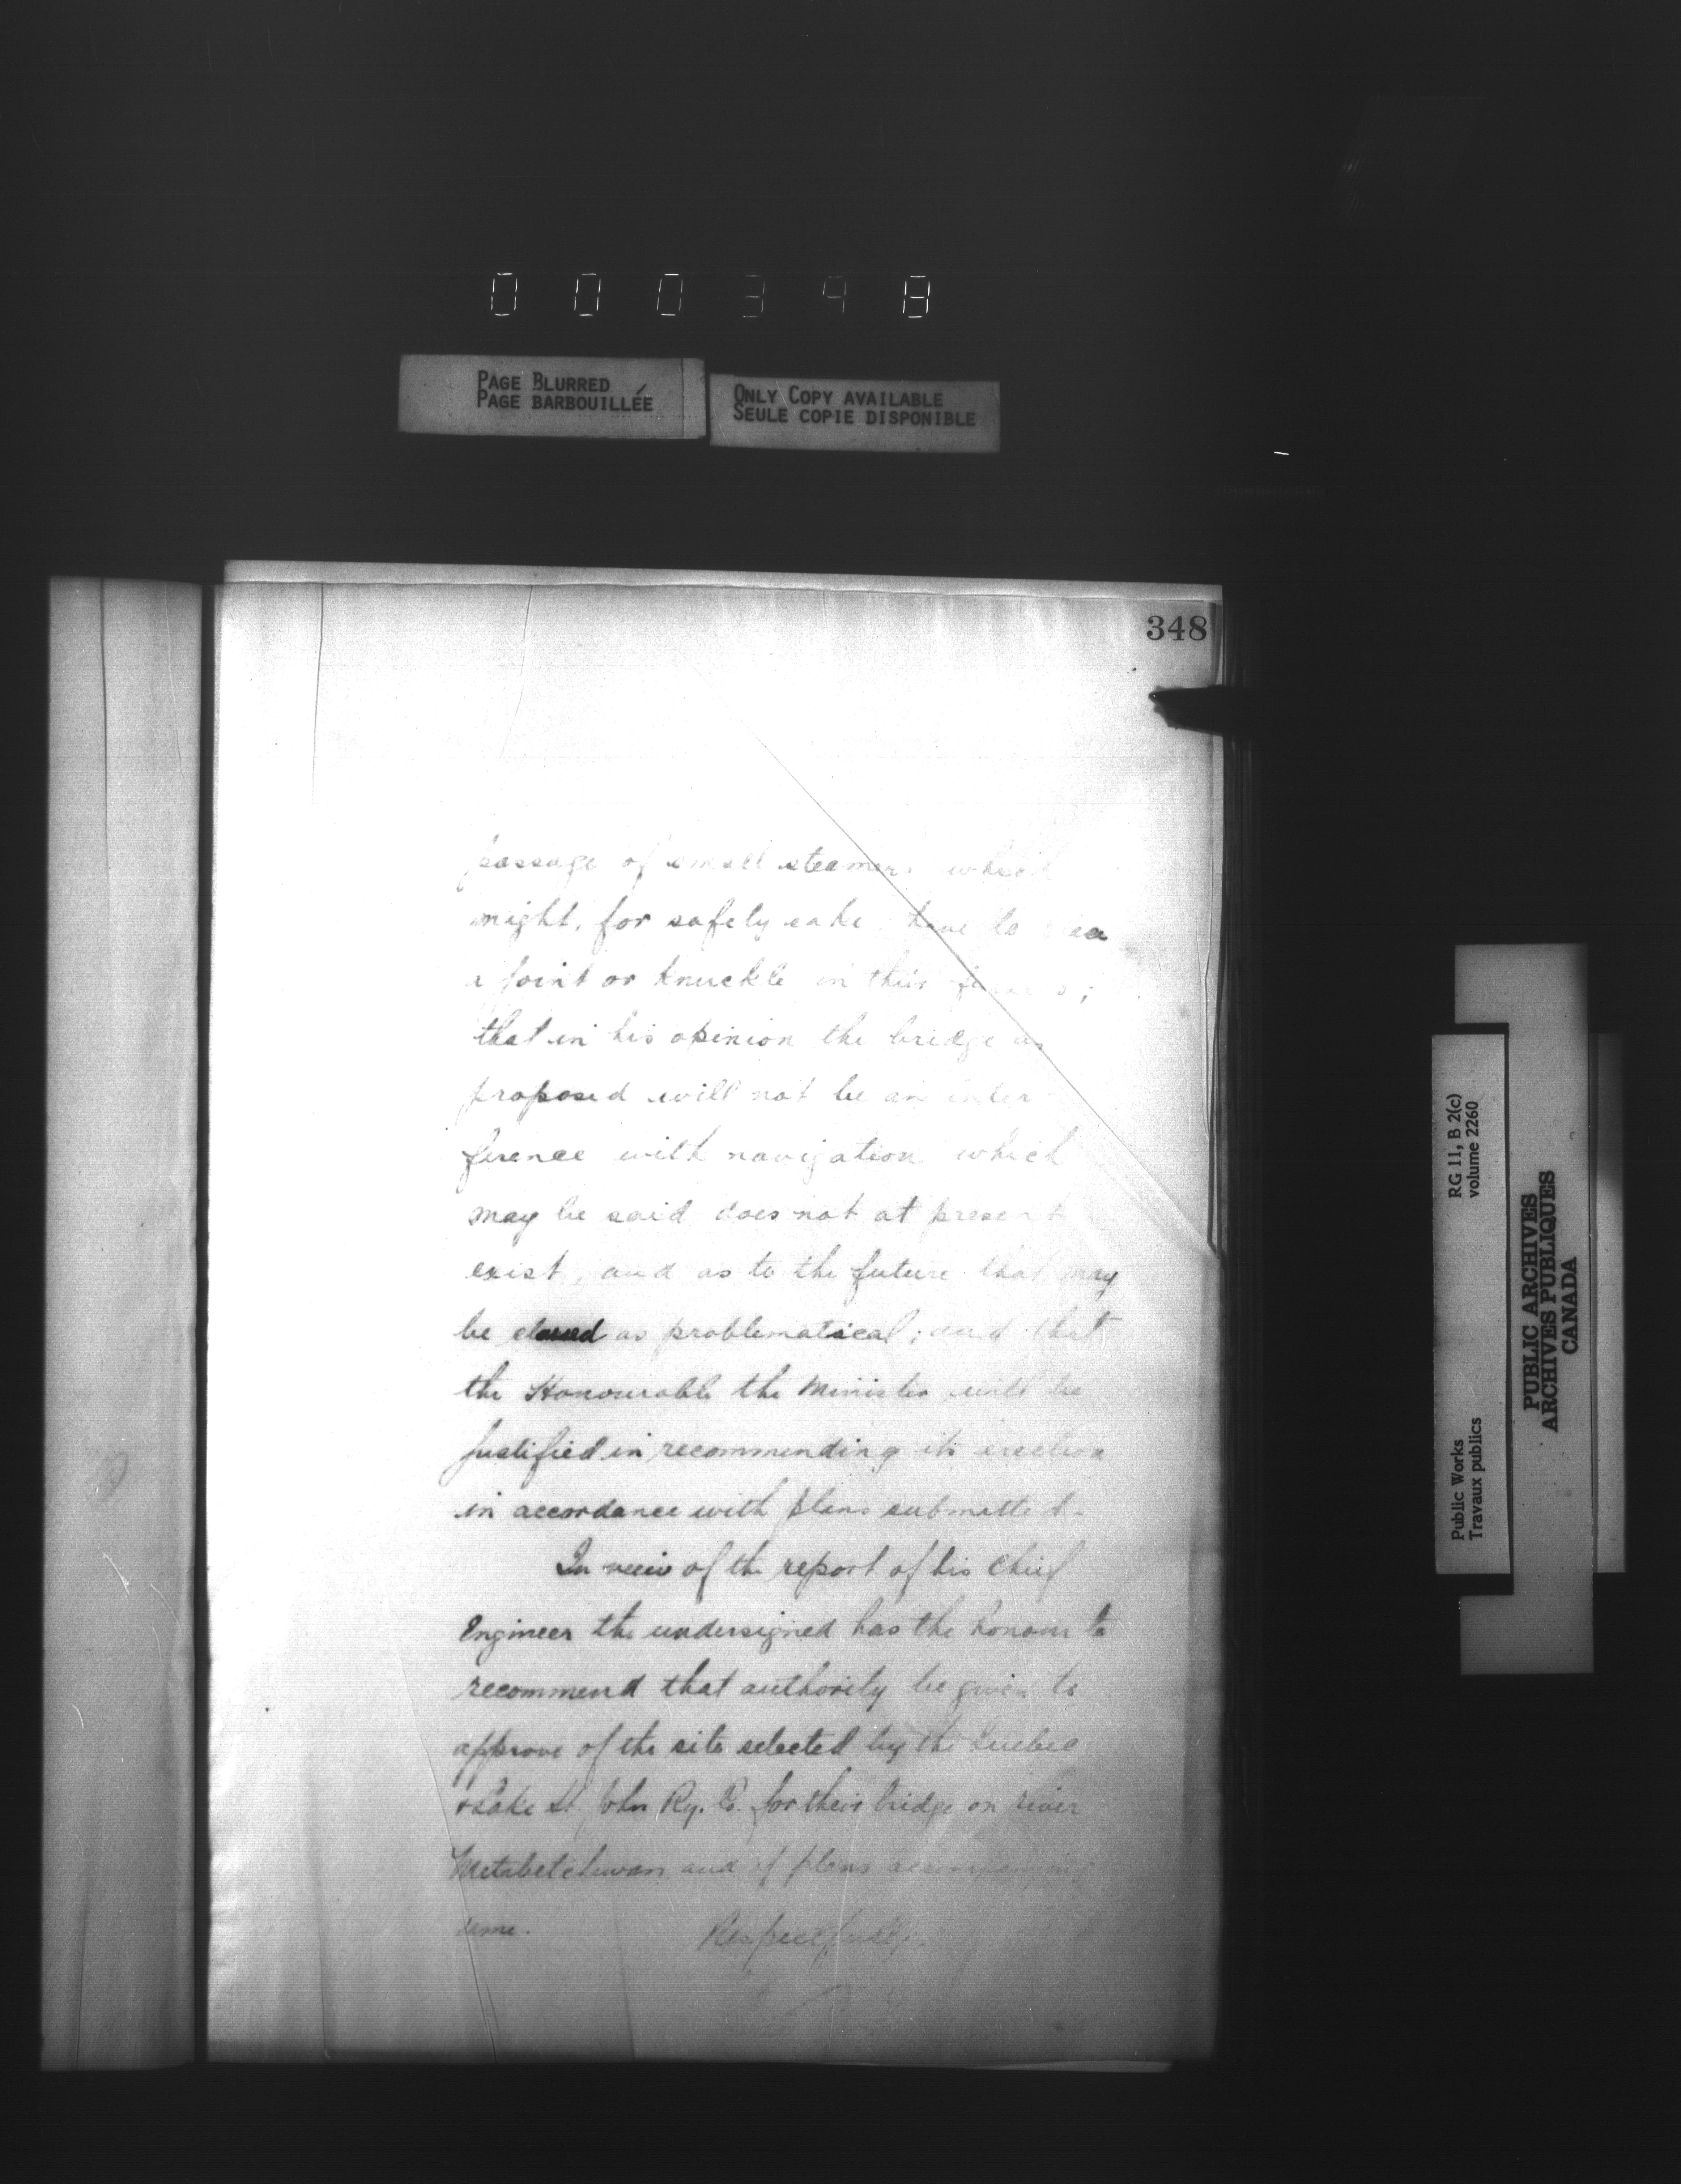 000348
PAGE BLURRED
PAGE BARBOUILLÉE
ONLY COPY AVAILABLE
SEULE COPIE DISPONIBLE
348
passage of small steamers which
might, for safety sake have to
a joint or knuckle in their
that in his opinion the bridge as
proposed will not be an inter
ference with navigation which
may be said does not at present
exist, and as to the future that may
be classed as problematical; and that
the Honourable the Minister will be
justified in recommending its erection
in accordance with plans submitted.
In view of the report of his Chief
Engineer the undersigned has the honour to
recommend that authority be given to
approve of the site selected by the Quebec
& Lake St. John Ry. Co. for their bridge on river
Metabetchuan and of plans accompanying
same. Respectfully
RG 11, B 2(c)
volume 2260
Public Works
Travaux publics
PUBLIC ARCHIVES
ARCHIVES PUBLIQUES
CANADA